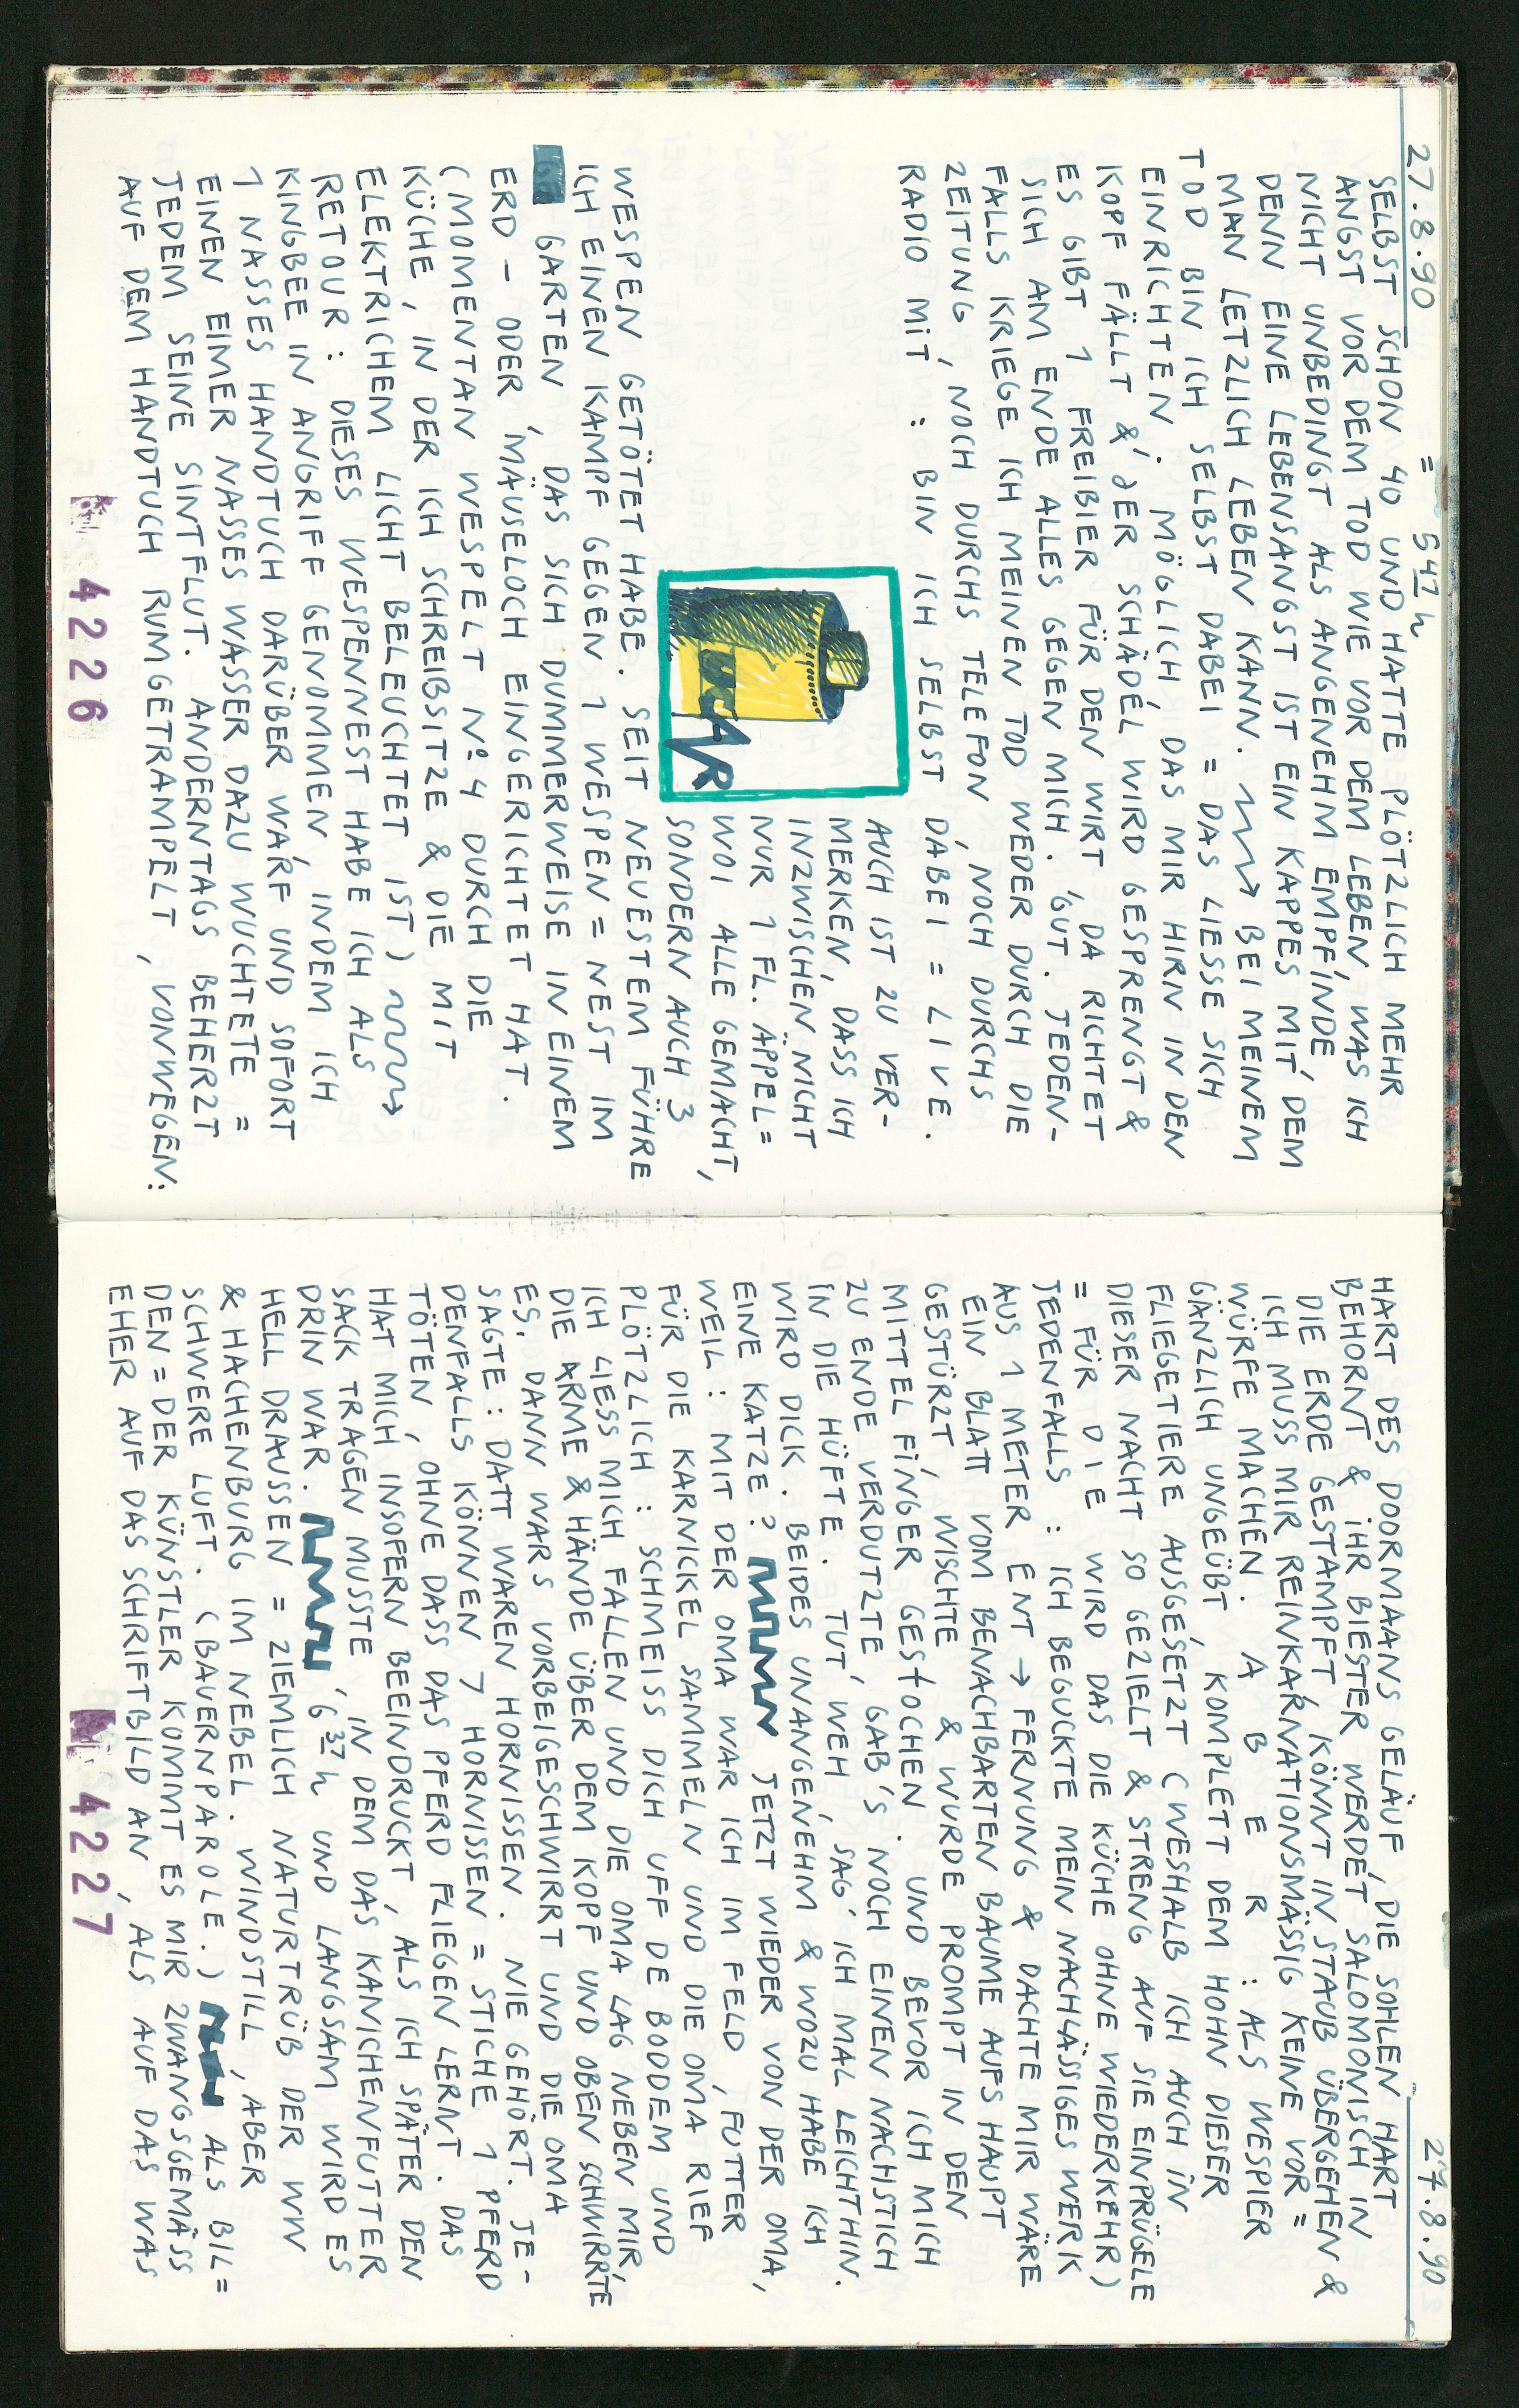 27.8.90 = 5 47 h
SELBST SCHON 40 UND HATTE PLÖTZLICH MEHR
ANGST VOR DEM TOD WIE VOR DEM LEBEN, WAS ICH
NICHT UNBEDINGT ALS ANGENEHM EMPFINDE,
DENN EINE LEBENSANGST IST EIN KAPPES MIT DEM
MAN LETZLICH LEBEN KANN. BEI MEINEM
TOD BIN ICH SELBST DABEI = DAS LIESSE SICH
EINRICHTEN. MÖGLICH, DAS MIR HIRN IN DEN
KOPF FÄLLT & DER SCHÄDEL WIRD GESPRENGT &
ES GIBT 1 FREIBIER FÜR DEN WIRT, DA RICHTET
SICH AM ENDE ALLES GEGEN MICH. GUT. JEDEN-
FALLS KRIEGE ICH MEINEN TOD WEDER DURCH DIE
ZEITUNG, NOCH DURCHS TELEFON, NOCH DURCHS
RADIO MIT: BIN ICH SELBST DABEI = LIVE.
AUCH IST ZU VER-
MERKEN, DASS ICH
INZWISCHEN NICHT
NUR 1 FL. ÄPPEL=
WOI ALLE GEMACHT,
SONDERN AUCH 3
WESPEN GETÖTET HABE. SEIT NEUESTEM FÜHRE
ICH EINEN KAMPF GEGEN 1 WESPEN = NEST IM
GARTEN, DAS SICH DUMMERWEISE IN EINEM
ERD - ODER MÄUSELOCH EINGERICHTET HAT.
(MOMENTAN WESPELT Nº 4 DURCH DIE
KÜCHE, IN DER ICH SCHREIBSITZE & DIE MIT
ELEKTRICHEM LICHT BELEUCHTET IST)
RETOUR: DIESES WESPENNEST HABE ICH ALS
KINGBEE IN ANGRIFF GENOMMEN, INDEM ICH
1 NASSES HANDTUCH DARÜBER WARF UND SOFORT
EINEN EIMER NASSES WASSER DAZU WUCHTETE =
JEDEM SEINE SINTFLUT. ANDERNTAGS BEHERZT
AUF DEM HANDTUCH RUMGETRAMPELT, VONWEGEN:
4226
27.8.90
HART DES DOORMAANS GELÄUF, DIE SOHLEN HART
BEHORNT & IHR BIESTER WERDET SALOMONISCH IN
DIE ERDE GESTAMPFT, KÖNNT IN STAUB ÜBERGEHEN &
ICH MUSS MIR REINKARNATIONSMÄSSIG KEINE VOR=
WÜRFE MACHEN. ABER: ALS WESPIER
GÄNZLICH UNGEÜBT, KOMPLETT DEM HOHN DIESER
FLIEGETIERE AUSGESETZT (WESHALB ICH AUCH IN
DIESER NACHT SO GEZIELT & STRENG AUF SIE EINPRÜGELE
= FÜR DIE WIRD DAS DIE KÜCHE OHNE WIEDERKEHR)
JEDENFALLS: ICH BEGUCKTE MEIN NACHLÄSSIGES WERK
AUS 1 METER ENT → FERNUNG & DACHTE MIR WÄRE
EIN BLATT VOM BENACHBARTEN BAUME AUFS HAUPT
GESTÜRZT, WISCHTE & WURDE PROMPT IN DEN
MITTELFINGER GESTOCHEN. UND BEVOR ICH MICH
ZU ENDE VERDUTZTE, GAB'S NOCH EINEN NACHSTICH
IN DIE HÜFTE. TUT WEH, SAG' ICH MAL LEICHTHIN.
WIRD DICK. BEIDES UNANGENEHM & WOZU HABE ICH
EINE KATZE? JETZT WIEDER VON DER OMA,
WEIL: MIT DER OMA WAR ICH IM FELD, FUTTER
FÜR DIE KARNICKEL SAMMELN UND DIE OMA RIEF
PLÖTZLICH: SCHMEISS DICH UFF DE BODDEM UND
ICH LIESS MICH FALLEN UND DIE OMA LAG NEBEN MIR,
DIE ARME & HÄNDE ÜBER DEM KOPF UND OBEN SCHWIRRTE
ES. DANN WARS VORBEIGESCHWIRRT UND DIE OMA
SAGTE: DATT WAREN HORNISSEN. NIE GEHÖRT. JE-
DENFALLS KÖNNEN 7 HORNISSEN = STICHE 1 PFERD
TÖTEN, OHNE DASS DAS PFERD FLIEGEN LERNT. DAS
HAT MICH INSOFERN BEEINDRUCKT, ALS ICH SPÄTER DEN
SACK TRAGEN MUSSTE, IN DEM DAS KANICHENFUTTER
DRIN WAR. 6 37 h UND LANGSAM WIRD ES
HELL DRAUSSEN = ZIEMLICH NATURTRÜB DER WW
& HACHENBURG IM NEBEL. WINDSTILL, ABER
SCHWERE LUFT. (BAUERNPAROLE.) ALS BIL=
DEN = DER KÜNSTLER KOMMT ES MIR ZWANGSGEMÄSS
EHER AUF DAS SCHRIFTBILD AN, ALS AUF DAS WAS
4227